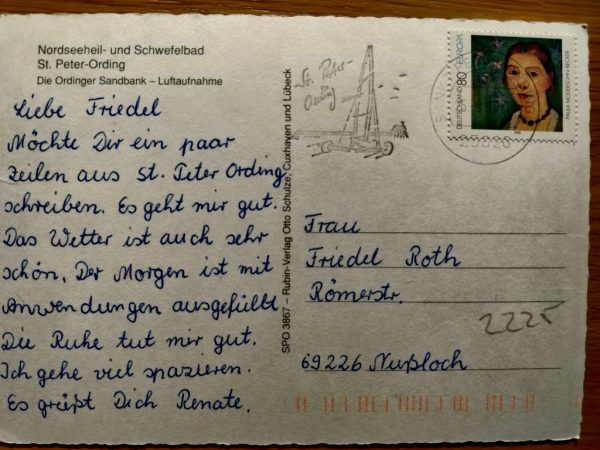 Nordseeheil- und Schwefelbad
St. Peter-Ording
Die Ordinger Sandbank – Luftaufnahme
Liebe Friedel
Möchte Dir ein paar
Zeilen aus St. Peter Ording
schreiben. Es geht mir gut.
Das Wetter ist auch sehr
schön. Der Morgen ist mit
Anwendungen ausgefüllt.
Die Ruhe tut mir gut.
Ich gehe viel spazieren.
Es grüßt Dich Renate.
SPO 3867 – Rubin-Verlag Otto Schulze, Cuxhaven und Lübeck
St. Peter-
Ording
DEUTSCHLAND 80 EUROPA
PAULA MODERSOHN-BECKER
1996
25826
Frau
Friedel Roth
Römerstr.
2225
69226 Nußloch